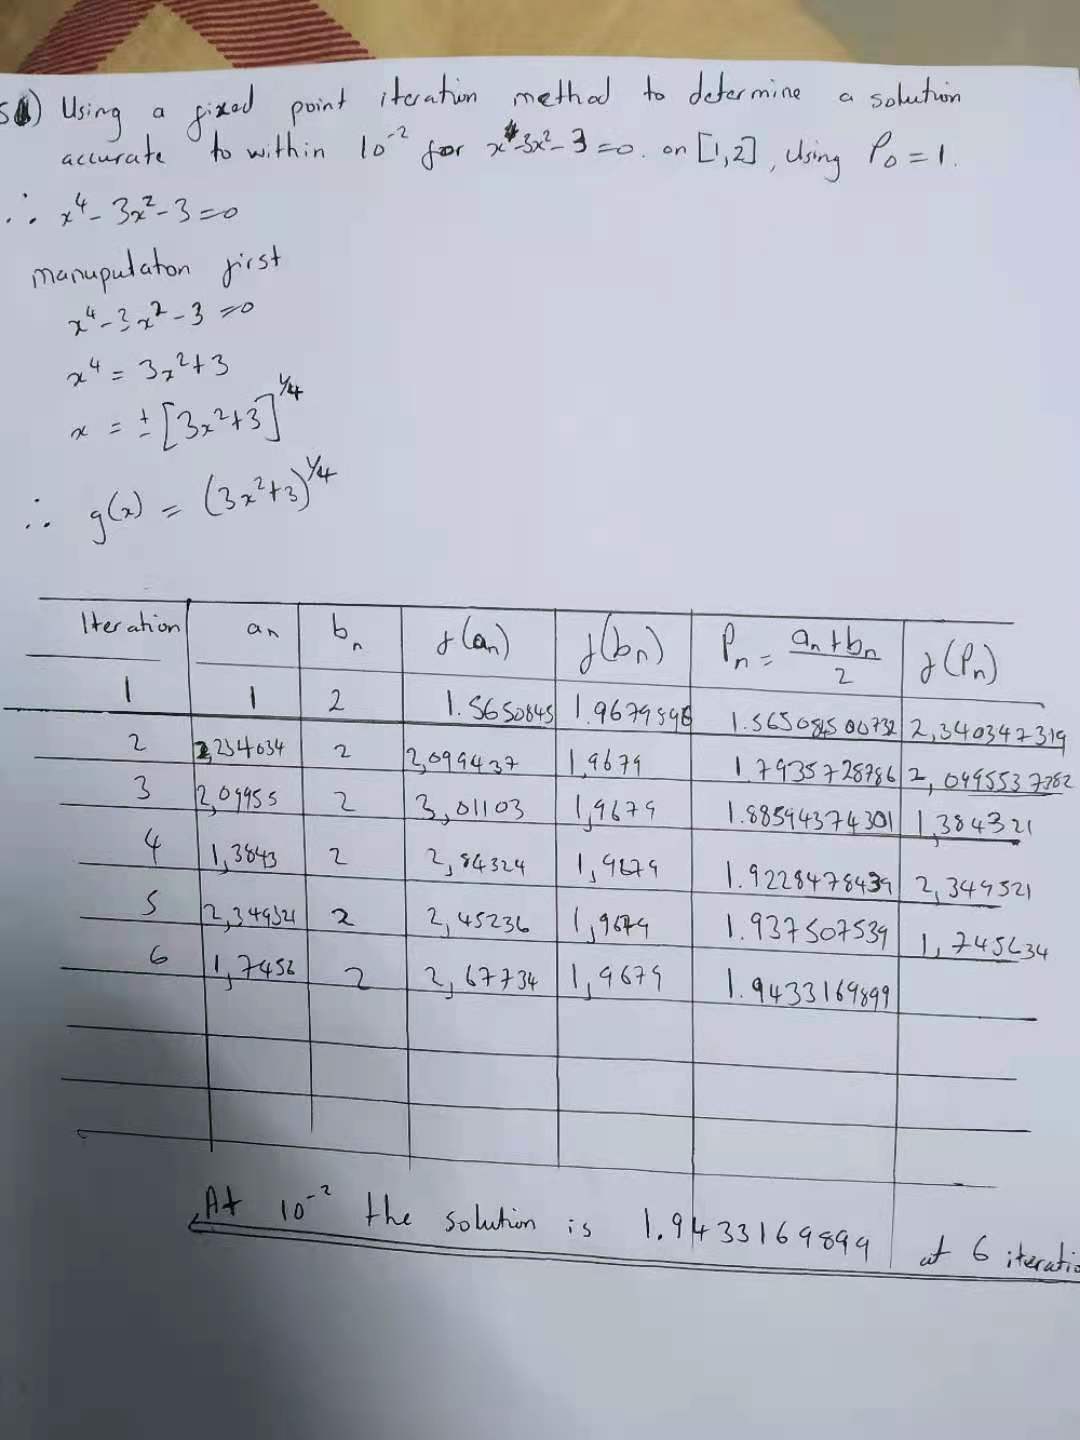 Using a fixed point iteration method to determine a solution
accurate to within 10⁻² for x⁴-3x²-3=0. on [1,2], Using P₀=1.
∴ x⁴-3x²-3=0
manupulation first
x⁴-3x²-3=0
x⁴ = 3x²+3
x = ±[3x²+3]^¼
∴ g(x) = (3x²+3)^¼
Iteration aₙ bₙ f(aₙ) f(bₙ) Pₙ = (aₙ+bₙ)/2 f(Pₙ)
1 1 2 1.5650845 1.9679898 1.56508450732 2,340347319
2 2,234034 2 2,099437 1,9679 1.7935728786 2,0995537382
3 2,09955 2 3,01103 1,9679 1.88594374301 1,384321
4 1,3843 2 2,84324 1,9679 1.9228478439 2,349521
5 2,349521 2 2,45236 1,9679 1.937507539 1,745634
6 1,7456 2 2,67734 1,9679 1.9433169899
At 10⁻² the solution is 1.9433169899 at 6 iteratio